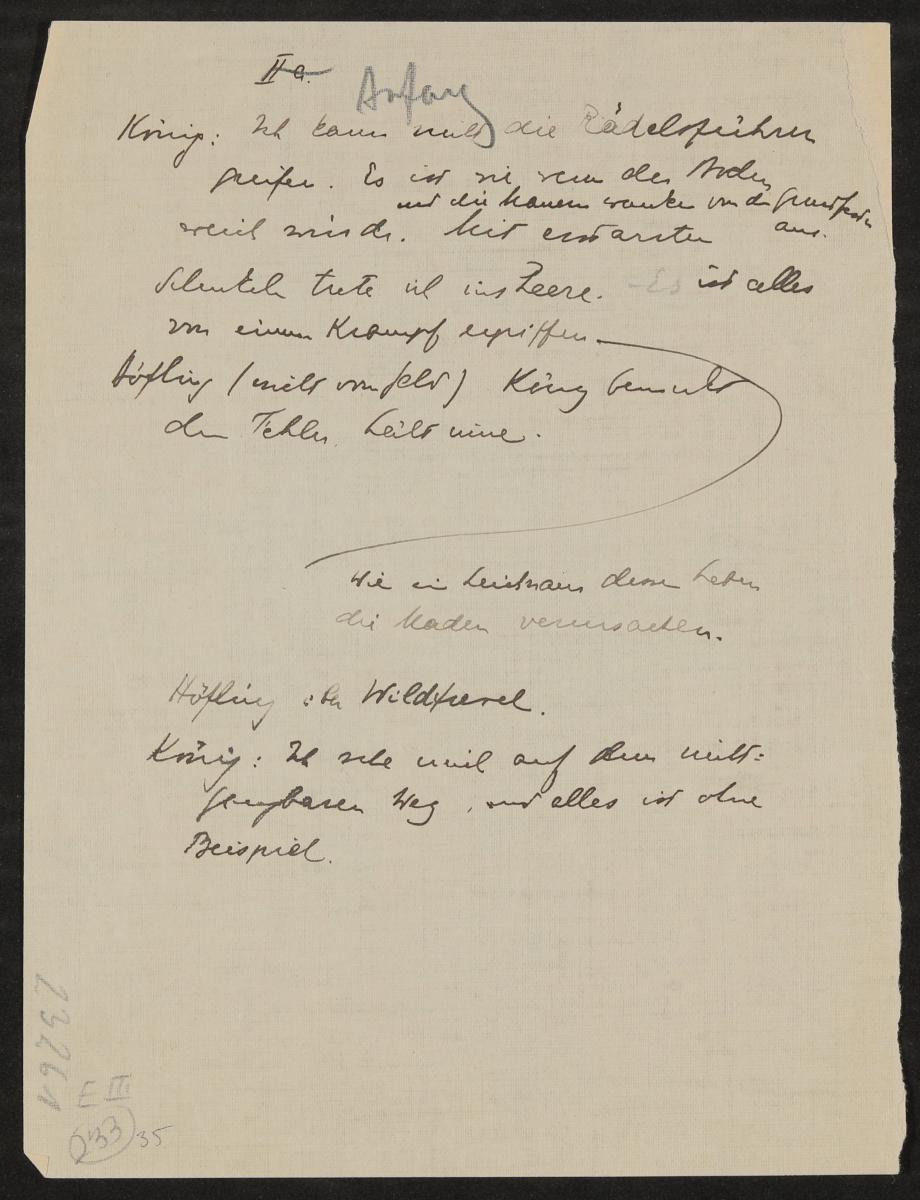 II a.
Anfang
König: Ich kann nicht die Rädelsführer
greifen. Es ist wie wenn der Boden
und die Mauern wanken von der Grundfesten
aus.
weich würde. Mit erstarrten
Schenkeln trete ich ins Leere. – Es ist alles
von einem Krampf ergriffen
Höfling (nicht vom Feld) König bemerkt
den Fehler, hält inne.
Wie ein Leichnam dessen Leben
die Maden verursachen.
Höfling: der Wildfrevel.
König: Ich sehe mich auf dem nicht=
gangbaren Weg, und alles ist ohne
Beispiel.
23261
E III
233 35